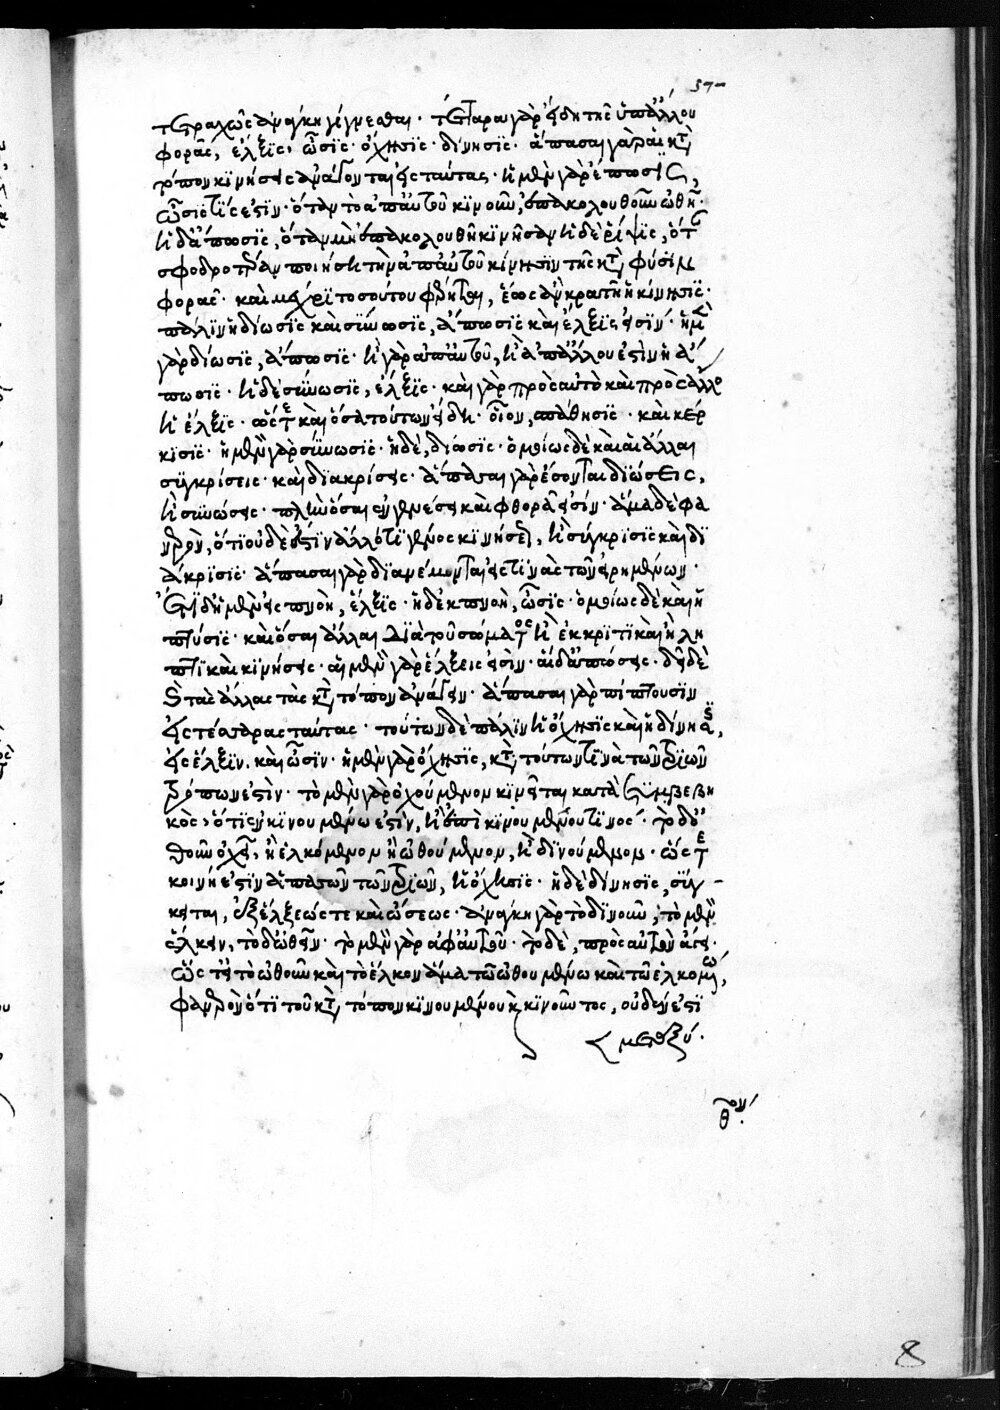 τετραχῶς ἀνάγκη γίγνεσθαι. τέτταρα γὰρ εἴδη τῆς ὑπ' ἄλλου
φορᾶς, ἕλξις, ὦσις, ὄχησις, δίνησις. ἅπασαι γὰρ αἱ κατὰ
τόπον κινήσεις ἀνάγονται εἰς ταύτας. ἡ μὲν γὰρ ἔπωσις,
ὦσίς τίς ἐστιν, ὅταν τὸ ἀπ' αὐτοῦ κινοῦν, ἐπακολουθοῦν ὠθῇ.
ἡ δ' ἄπωσις, ὅταν μὴ ἐπακολουθῇ κινῆσαν. ἡ δὲ ῥίψις, ὅταν
σφοδροτέραν ποιήσῃ τὴν ἀπ' αὐτοῦ κίνησιν τῆς κατὰ φύσιν
φορᾶς. καὶ μέχρι τοσούτου φέρηται, ἕως ἂν κρατῇ ἡ κίνησις.
πάλιν ἡ δίωσις καὶ σύνωσις, ἄπωσις καὶ ἕλξις εἰσίν. ἡ μὲν
γὰρ δίωσις, ἄπωσις. ἢ γὰρ ἀπ' αὐτοῦ, ἢ ἀπ' ἄλλου ἐστὶν ἡ ἄ
πωσις. ἡ δὲ σύνωσις, ἕλξις. καὶ γὰρ πρὸς αὑτὸ καὶ πρὸς ἄλλο
ἡ ἕλξις. ὥστε καὶ ὅσα τούτων εἴδη. οἷον, σπάθησις. καὶ κέρ
κισις. ἡ μὲν γὰρ σύνωσις. ἡ δὲ, δίωσις. ὁμοίως δὲ καὶ αἱ ἄλλαι
συγκρίσεις καὶ διακρίσεις. ἅπασαι γὰρ ἔσονται διώσεις,
ἢ συνώσεις. πλὴν ὅσαι ἐν γενέσει καὶ φθορᾷ εἰσίν. ἅμα δὲ φα
νερὸν, ὅτι οὐδὲ ἔστιν ἄλλο τι γένος κινήσεως, ἢ σύγκρισις καὶ δι
άκρισις. ἅπασαι γὰρ διανέμονται εἴς τινας τῶν εἰρημένων.
ἔτι δ' ἡ μὲν εἰσπνοὴ, ἕλξις. ἡ δ' ἐκπνοὴ, ὦσις. ὁμοίως δὲ καὶ ἡ
πτύσις. καὶ ὅσαι ἄλλαι διὰ τοῦ σώματος ἢ ἐκκριτικαὶ ἢ λη
πτικαὶ κινήσεις. αἱ μὲν γὰρ ἕλξεις εἰσὶν. αἱ δ' ἀπώσεις. δεῖ δὲ
καὶ τὰς ἄλλας τὰς κατὰ τόπον ἀνάγειν. ἅπασαι γὰρ πίπτουσιν
εἰς τέσσαρας ταύτας. τούτων δὲ πάλιν ἡ ὄχησις καὶ ἡ δίνησις,
εἰς ἕλξιν καὶ ὦσιν. ἡ μὲν γὰρ ὄχησις, κατὰ τούτων τινὰ τῶν τριῶν
τρόπων ἐστὶν. τὸ μὲν γὰρ ὀχούμενον κινεῖται κατὰ συμβεβη
κὸς, ὅτι ἐν κινουμένῳ ἐστὶν, ἢ ἐπὶ κινουμένου τινός. τὸ δ' ὀ
χοῦν ὀχεῖ, ἢ ἑλκόμενον ἢ ὠθούμενον, ἢ δινούμενον. ὥστε
κοινή ἐστιν ἁπασῶν τῶν τριῶν, ἡ ὄχησις. ἡ δὲ δίνησις, σύγ-
κειται, ἐξ ἕλξεώς τε καὶ ὤσεως. ἀνάγκη γὰρ τὸ δινοῦν, τὸ μὲν
ἕλκειν, τὸ δ' ὠθεῖν. τὸ μὲν γὰρ ἀφ' αὑτοῦ. τὸ δὲ, πρὸς αὑτὸν ἄγει.
ὥστ' εἰ τὸ ὠθοῦν καὶ τὸ ἕλκον ἅμα τῷ ὠθουμένῳ καὶ τῷ ἑλκομένῳ,
φανερὸν ὅτι τοῦ κατὰ τόπον κινουμένου καὶ κινοῦντος, οὐδέν ἐστι
μεταξύ.
8